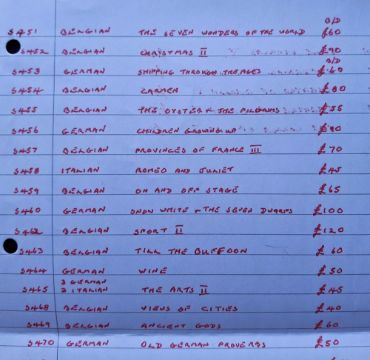 B/D
S451 BELGIAN THE SEVEN WONDERS OF THE WORLD £60
S452 BELGIAN CHRISTMAS II £90
B/D
S453 GERMAN SHIPPING THROUGH THE AGES £60
S454 BELGIAN CARMEN £80
S455 BELGIAN THE OYSTER & THE PILGRIMS £55
S456 GERMAN CHILDREN GROWING UP £90
S457 BELGIAN PROVINCES OF FRANCE III £70
S458 ITALIAN ROMEO AND JULIET £45
S459 BELGIAN ON AND OFF STAGE £65
S460 GERMAN SNOW WHITE & THE SEVEN DWARFS £100
S462 BELGIAN SPORT II £120
S463 BELGIAN TILL THE BUFFOON £60
S464 GERMAN WINE £50
3 GERMAN
S465 3 ITALIAN THE ARTS II £45
S468 BELGIAN VIEWS OF CITIES £40
S469 BELGIAN ANCIENT GODS £60
S470 GERMAN OLD GERMAN PROVERBS £50